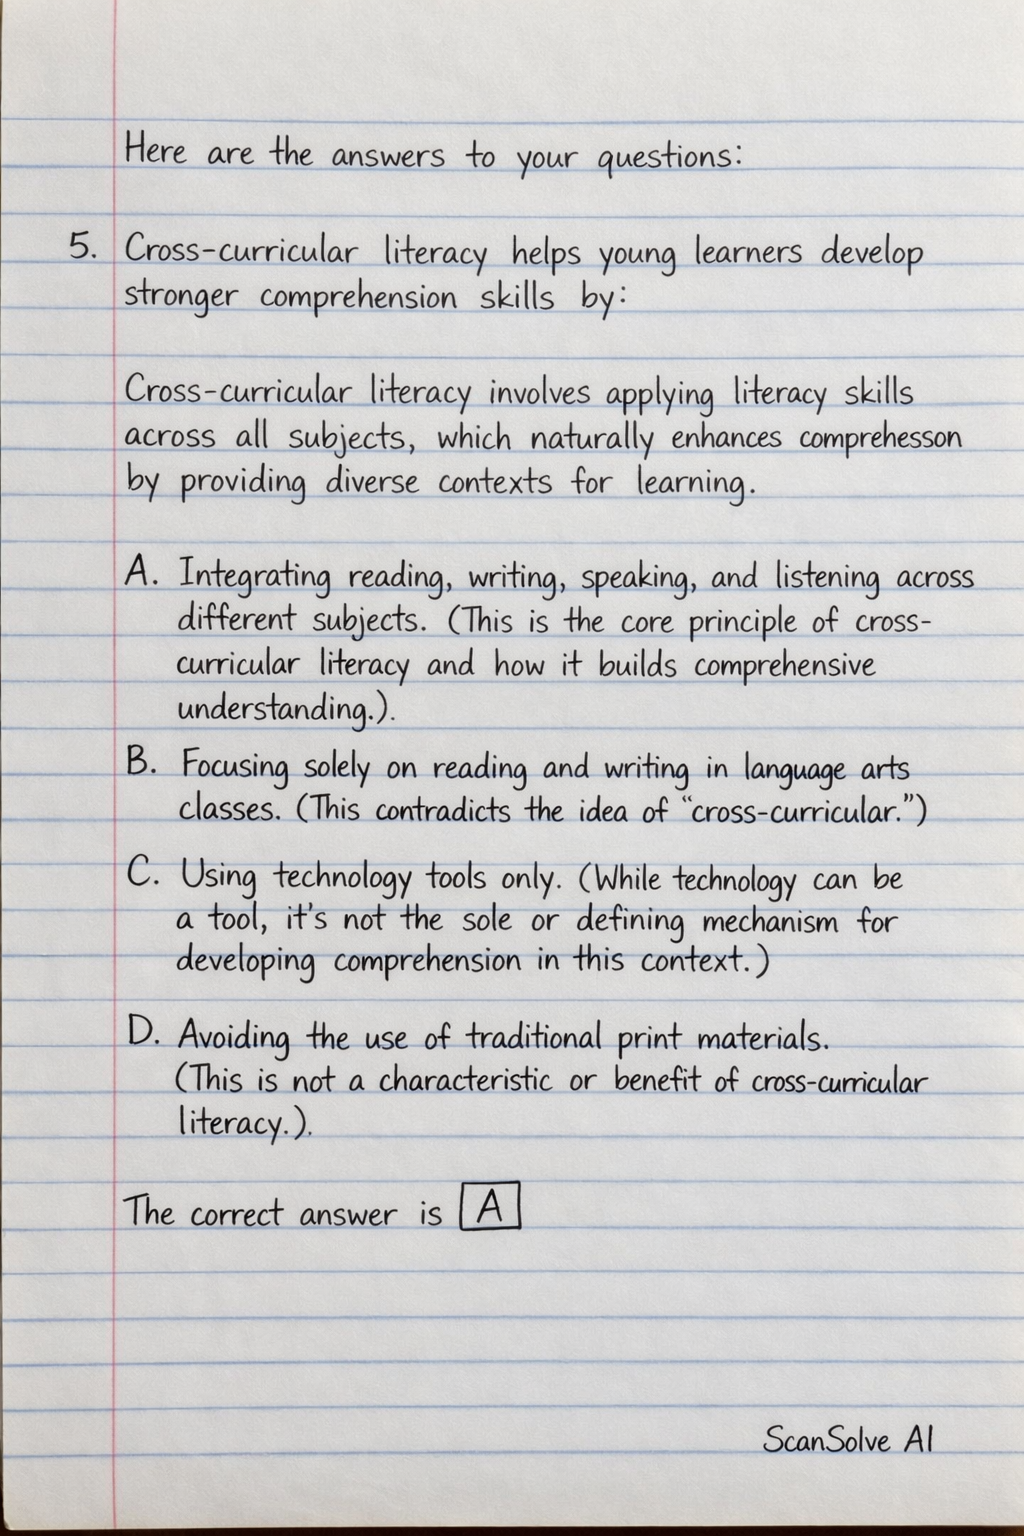 Here are the answers to your questions:
5. Cross-curricular literacy helps young learners develop
stronger comprehension skills by:
Cross-curricular literacy involves applying literacy skills
across all subjects, which naturally enhances comprehesson
by providing diverse contexts for learning.
A. Integrating reading, writing, speaking, and listening across
different subjects. (This is the core principle of cross-
curricular literacy and how it builds comprehensive
understanding.).
B. Focusing solely on reading and writing in language arts
classes. (This contradicts the idea of “cross-curricular.”)
C. Using technology tools only. (While technology can be
a tool, it's not the sole or defining mechanism for
developing comprehension in this context.)
D. Avoiding the use of traditional print materials.
(This is not a characteristic or benefit of cross-curricular
literacy.).
The correct answer is A
ScanSolve AI